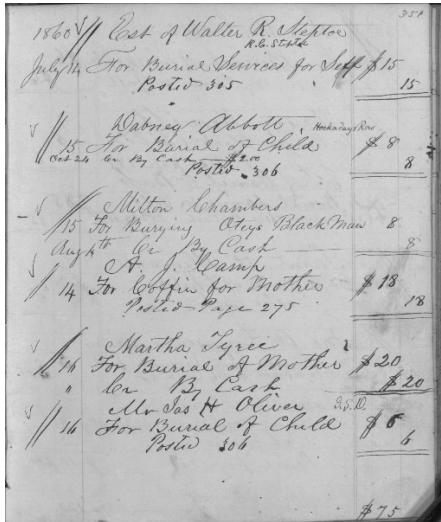 351
1860 Est of Walter R. Steptoe
R.C. Steptoe
July 14 For Burial Services for Self $15
Posted 305 15
Dabney Abbott Hockadays Row
15 For Burial of Child $8
Oct 24 Cr By Cash $2.00 8
Posted 306
Milton Chambers
15 For Burying Oteys Black Man 8
Augh Cr By Cash 8
A. J. Camp
14 For Coffin for Mother $18
Posted Page 275 18
Martha Tyree
16 For Burial of Mother $20
" Cr By Cash $20
Mr Jas H Oliver
16 For Burial of Child $6
Posted 306 6
$75